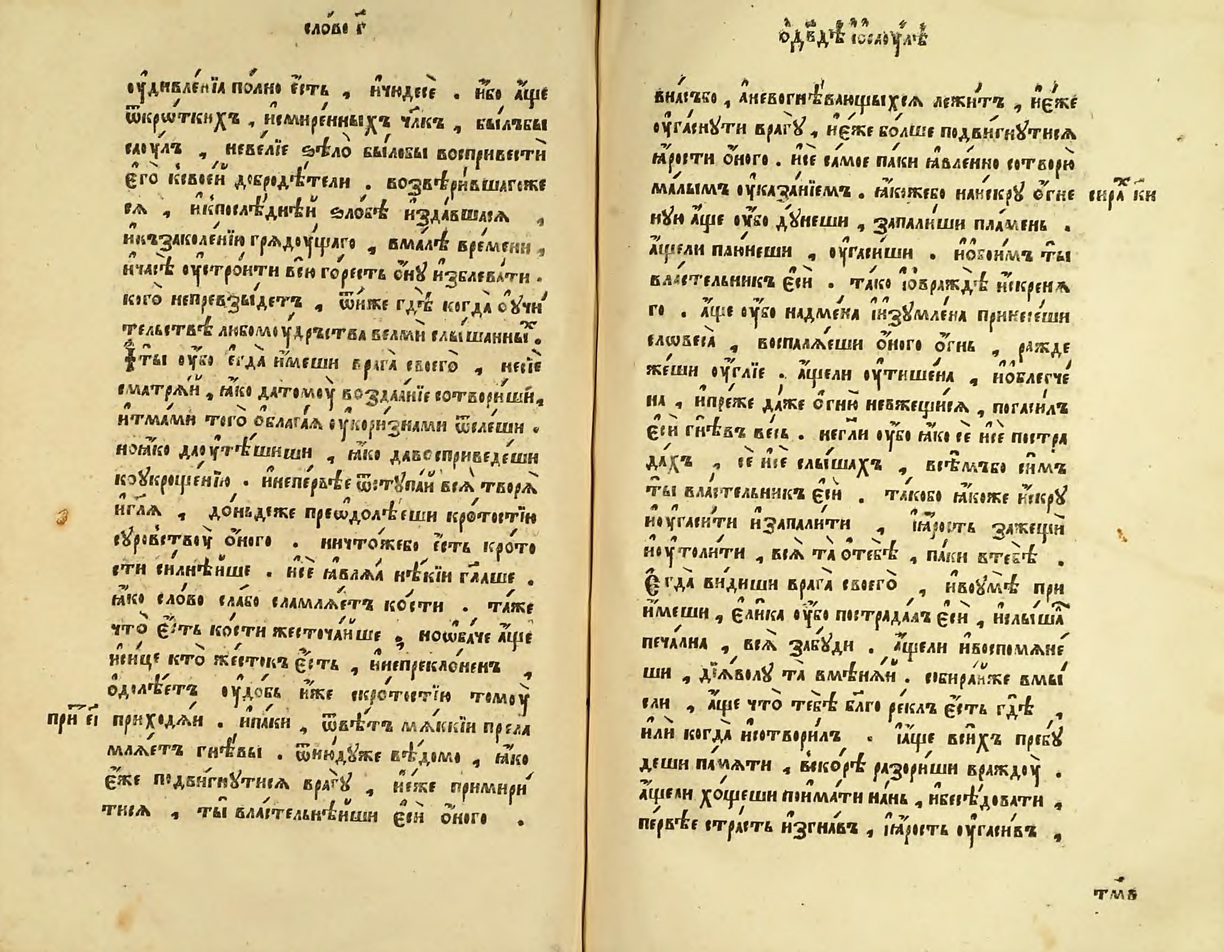 сло́во г҃
оу҆дивле́нїа по́лно є҆́сть , и҆чюдесѐ . и҆́бо а҆́ще
ѿкро́ткихъ , и҆смире́нныхъ чл҃къ , бы́лъбы
сау́лъ , невелїе ѕѣло̀ бы́лобы воспривестѝ
є҆го̀ ксвое́й доброде́тели . возвѣри́вшагожε
сѧ , и҆кпослѣ́дней ѕло́бѣ и҆зда́вшасѧ ,
и҆къзаколе́нїю грѧдꙋ́щаго , вма́лѣ вре́мени ,
и҆ча́сѣ оу҆стро́ити всю̀ го́ресть ѻ҆нꙋ̀ и҆зблева́ти .
кого̀ непревзы́детъ , ѿи҆́же гдѣ̀ когда̀ оу҆чи
тельствѣ любомоу́дръства велмѝ слы́шанны́х .
И҆ты̀ оу҆́бо є҆гда̀ и҆́меши врага̀ своего̀ , несїѐ
сматрѧ́й , ꙗ҆́ко датомоу̀ воздаѧ́нїе сотвори́ши ,
и҆тма́ми того̀ ѻ҆блага́ѧ оу҆кори́знами ѿсле́ши .
ноꙗ҆́ко даоу҆тѣ́шиши , ꙗ҆́ко давосприведе́ши
коукроще́нїю . и҆непе́рвѣе ѿступа́й всѧ̀ творѧ̀
и҆глѧ , до́ньдеже преѡдолѣ́еши кро́тостїю
суро́вствоу ѻ҆́ного . ничто́жебо є҆́сть кро́то
сти си́лнѣйше . и҆сѐ ꙗ҆влѧ́ѧ нѣ́кїи гл҃аше .
ꙗ҆́ко сло́во сла́бо сламлѧ́етъ ко́сти . та́же
что̀ є҆́сть ко́сти жесточа́йше , ноѡба́че а҆́ще
и҆сице кто̀ же́стокъ є҆́сть , и҆непрекло́ненъ ,
ѻ҆долѣ́етъ оу҆до́бь и҆́же скро́тостїю томоу̀
при́т еі приходѧ́й . и҆па́ки , ѿвѣ́тъ мѧ́ккїи прела
млѧ́етъ гнѣ́вы . ѿню́дуже вѣ́домо , ꙗ҆́ко
є҆́же подви́гнутисѧ врагꙋ̀ , и҆є҆́же примири́
тисѧ , ты̀ власте́льнѣйши є҆сѝ ѻ҆́ного .
ѻ҆дв҃дѣ и҆саоу́лѣ
внасъбо , а҆невогнѣ́вающыхсѧ лежи́тъ , и҆є҆́же
оу҆га́снути врагꙋ̀ , и҆є҆́же бо́лше подви́гнутисѧ
ꙗ҆́рости ѻ҆́ного . и҆сѐ са́мое па́ки ꙗ҆вле́нно сотворю̀
ма́лымъ оу҆каза́нїемъ . ꙗ҆́кожебо наи҆́скрꙋ ѻ҆́гне сира́х ки
нꙋю а҆́ще оу҆́бо ду́неши , запа́лиши пла́мень .
а҆́щели плю́неши , оу҆гаси́ши . и҆ѻ҆бои́мъ ты̀
власте́льникъ є҆сѝ . та́ко и҆ѻ҆вражде́ и҆́скренѧ
го . а҆́ще оу҆́бо надме́на и҆и҆зумле́на принесе́ши
словеса̀ , воспалѧ́еши ѻ҆́ного ѻ҆́гнь , ражде
же́ши оу҆́глїе . а҆́щели оу҆тише́на , и҆ѻ҆блегче́
на , и҆пре́же да́же ѻ҆гню̀ невжещи́сѧ , погаси́лъ
є҆сѝ гнѣ́въ ве́сь . негли̂ оу҆́бо ꙗ҆́ко сѐ и҆сѐ постра
да́хъ , сѐ и҆сѐ слы́шахъ , всѣ́мъбо си́мъ
ты̀ власте́льникъ є҆сѝ . та́кобо ꙗ҆́коже и҆́скрꙋ
и҆оу҆гаси́ти и҆запали́ти , и҆ꙗ҆́рость заже́щи
и҆оу҆толи́ти , всѧ̀ та̀ ѻ҆тебѣ̀ , па́ки втебѣ̀ .
Е҆гда̀ ви́диши врага̀ своего̀ , и҆воу҆мѣ̀ при
и҆́меши , є҆ли́ка оу҆́бо пострада́лъ є҆сѝ , и҆слы́ша
печа́лна , всѧ̀ забу́ди . а҆́щели и҆воспомѧне́
ши , дїѧ́волу та̀ вмѣнѧ́й . собира́йже вмы́
сли , а҆́ще что̀ тебѣ̀ бл҃го ре́клъ є҆́сть гдѣ̀ ,
и҆лѝ когда̀ и҆сотвори́лъ . и҆а҆́ще вси́хъ пребу́
деши па́мѧти , вско́рѣ разори́ши враждоу̀ .
а҆́щели хо́щеши пойма́ти на́нь , и҆бесѣ́довати ,
пе́рвѣе стра́сть и҆згна́въ , и҆ꙗ҆́рость оу҆гаси́въ ,
тм҃в